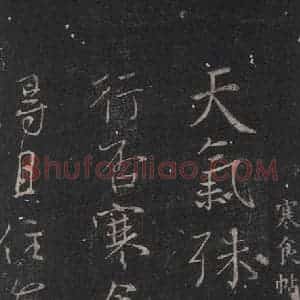 寒食帖
天氣殊
行百寒食
尋且住為
Shufaziliao.COM